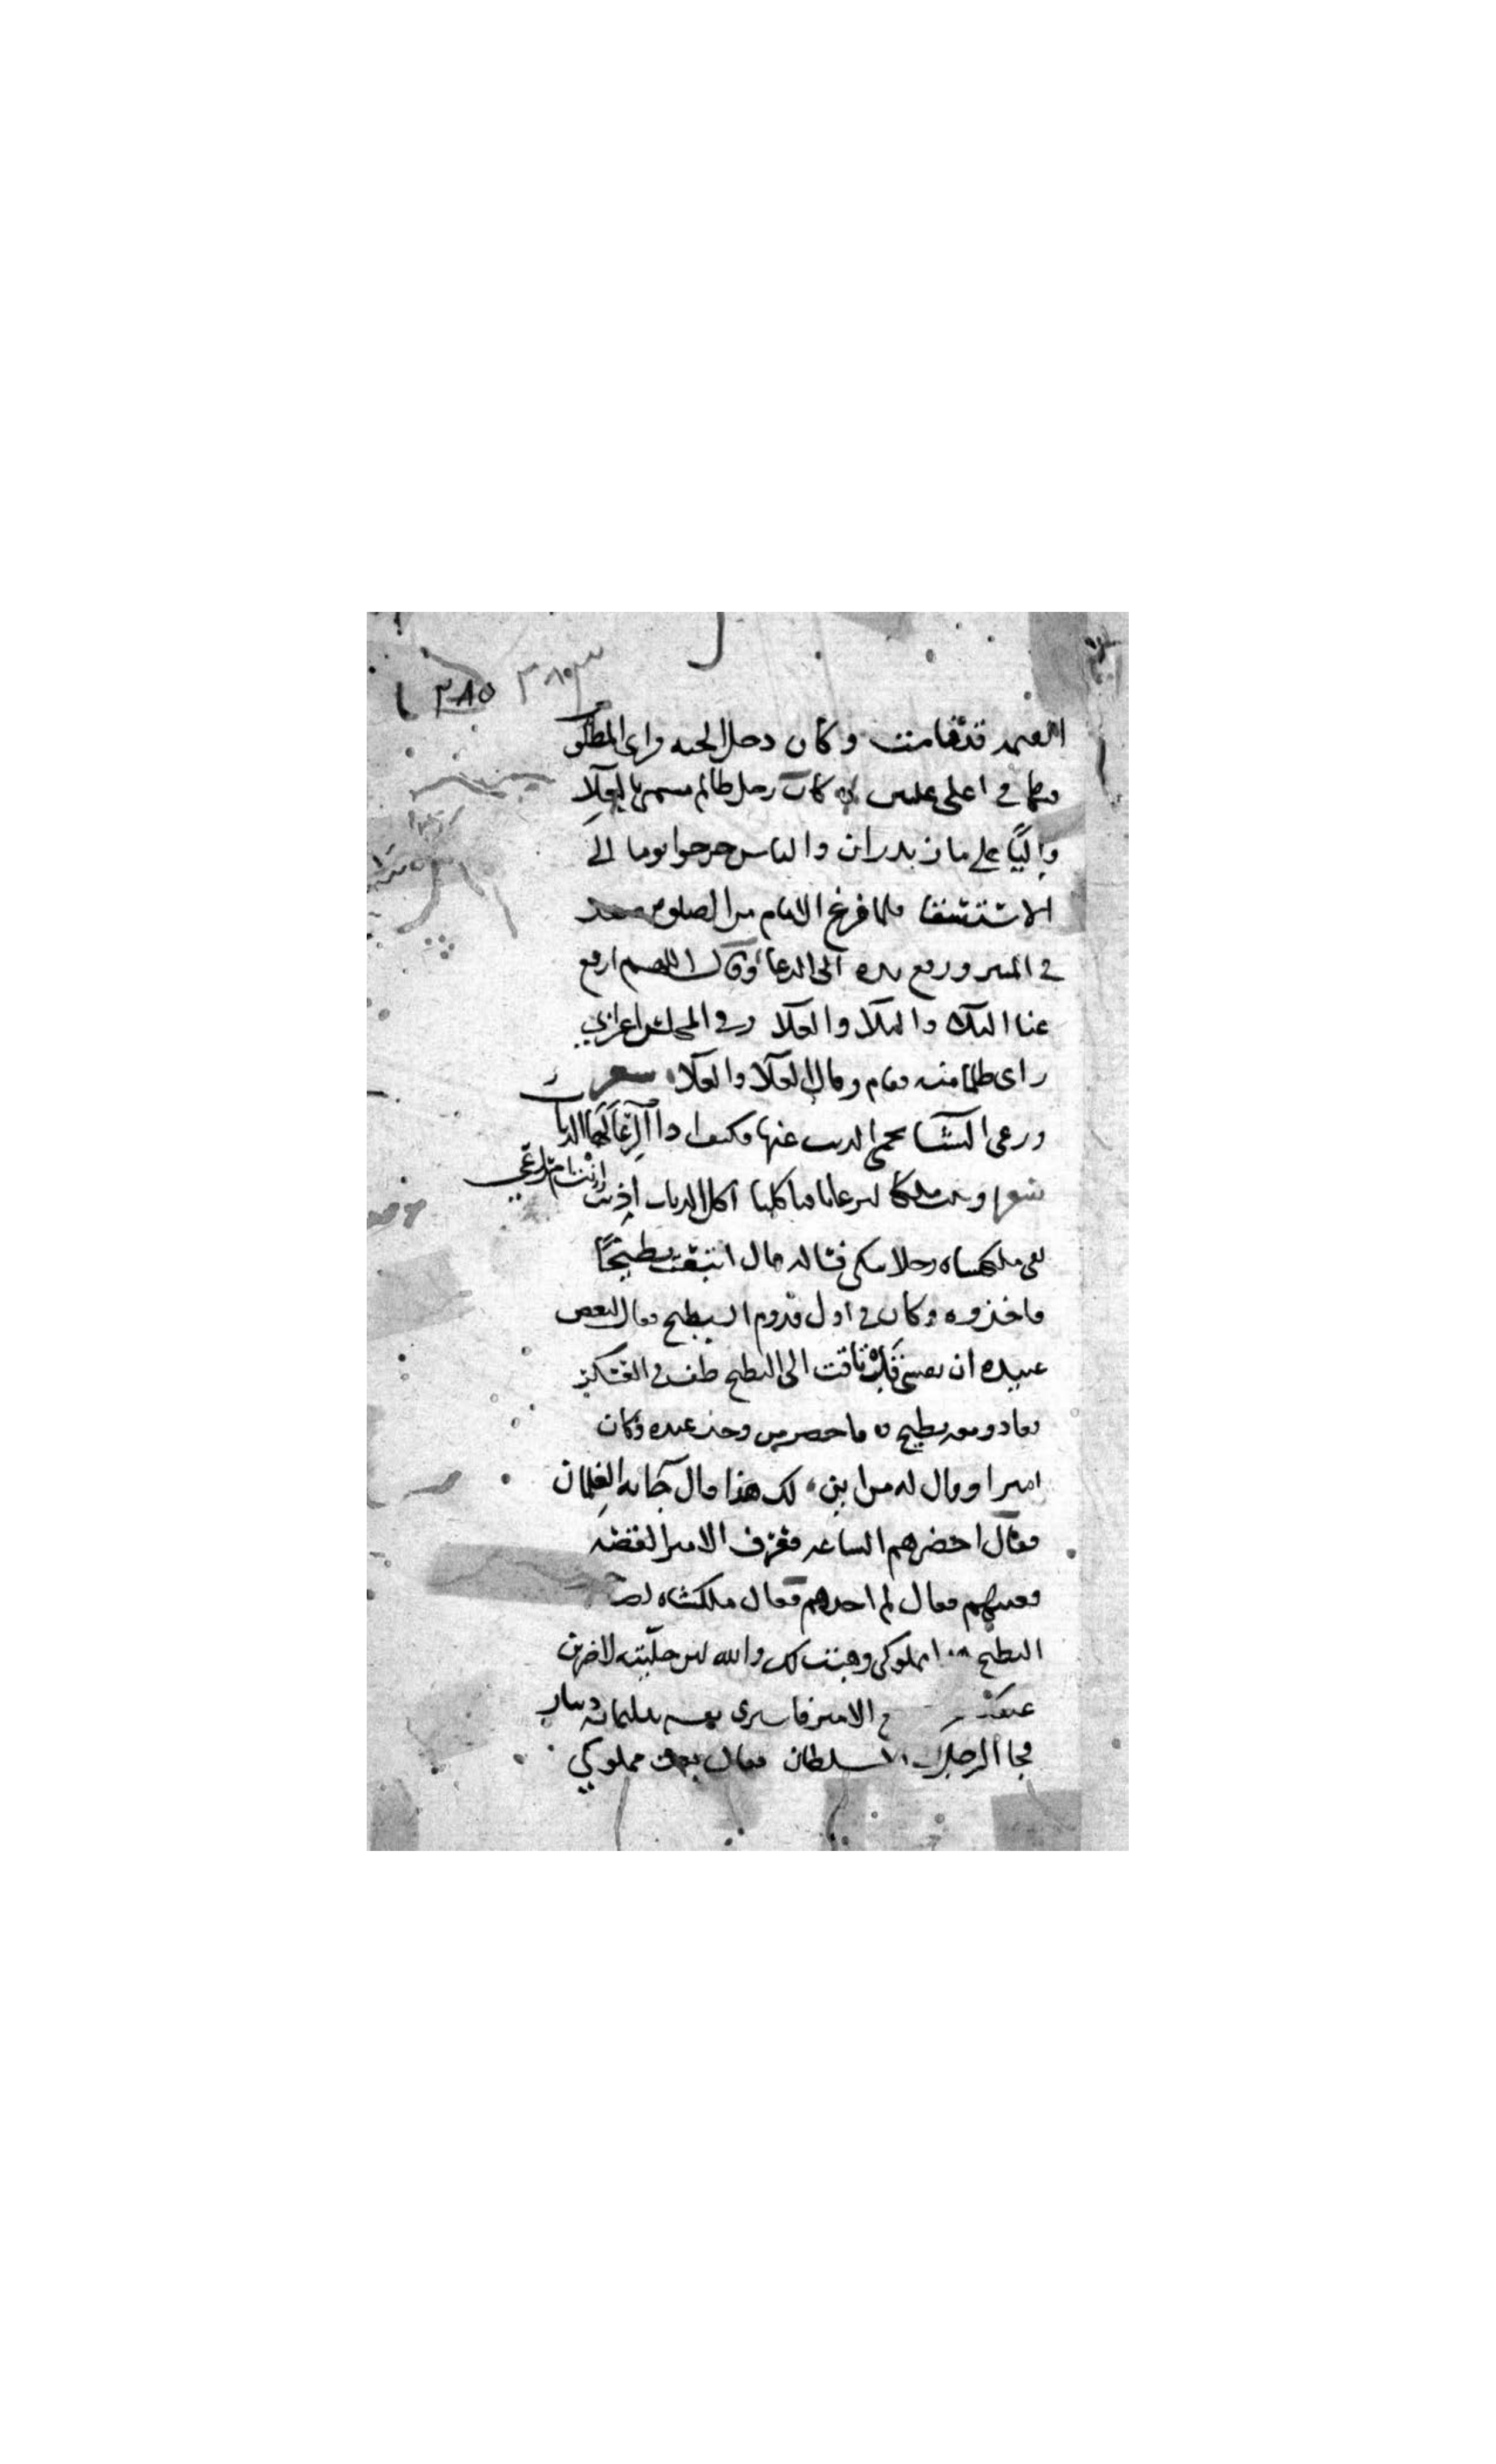 ٢٨٥ ٣٨٥
القيمه قد قامت وكان دخل الجنه وراى المطلو
فيها في اعلى عليين كان رجل ظالم مسمى بالعلا
واليًا على مازندران والناس خرجوا يوما الى
الاستسقا فلما فرغ الامام من الصلوه صعد
في المنبر ورفع يده الى الدعا وقال اللهم ارفع
عنا البلا والغلا وفي المجلس اعرابي
راى ظلما منه فقام وقال العلا والعلا شعر
وراعى الشا يحمى الذيب عنها فكيف اذا الرعا لها الذياب
شعر اكل الذياب
لقى ملكشاه رجلا يبكي فساله قال ابتعت بطيخًا
فاخذوه وكان في اول قدوم البطيخ فقال لبعض
عبيده ان نفسي قد تاقت الى البطيخ طف في العسكر
فعاد ومعه بطيخ فاحضر من وجد عنده وكان
اميرا وقال له من اين لك هذا قال جا به الغلمان
فقال احضرهم الساعه فعرف الامير القصه
فغيبهم فقال لم اجدهم فقال ملكشاه لصا
البطيخ مملوكي وهبته لك والله لئن خليته لاضربن
عنقك الامير فاشترى نفسه بثلثمائه دينار
فجا الرجل السلطان فقال بعت مملوكي